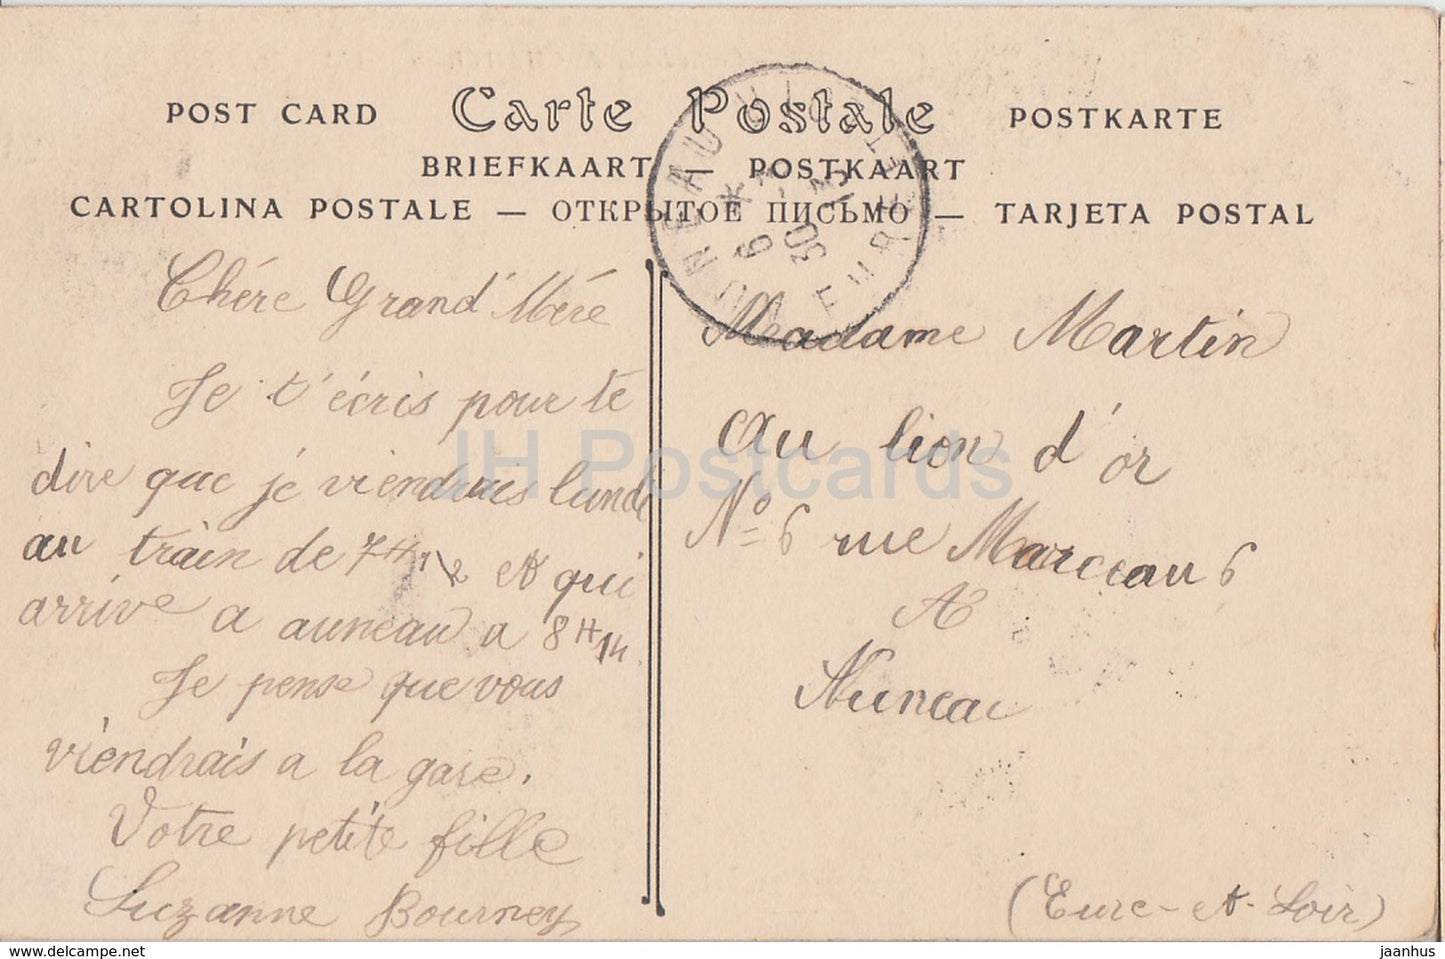 POST CARD Carte Postale POSTKARTE
BRIEFKAART — POSTKAART
CARTOLINA POSTALE — ОТКРЫТОЕ ПИСЬМО — TARJETA POSTAL
Chére Grand' Mére
Je t'écris pour te
dire que je viendrais lundi
au train de 7H 1/2 et qui
arrive a auneau a 8H 14
Je pense que vous
viendrais a la gare.
Votre petite fille
Suzanne Bourney
Madame Martin
Au lion d'or
No 6 rue Marceau 6
A
Auneau
(Eure-et-Loir)
JH Postcards
jaanhus